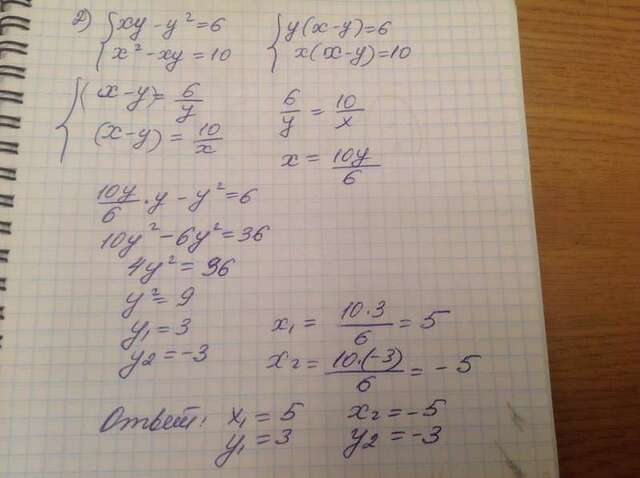 2) { xy - y² = 6    { y(x-y) = 6
x² - xy = 10    x(x-y) = 10
{ (x-y) = 6/y    6/y = 10/x
(x-y) = 10/x    x = 10y/6
10y/6 · y - y² = 6
10y² - 6y² = 36
4y² = 36
y² = 9
y₁ = 3    x₁ = 10·3/6 = 5
y₂ = -3    x₂ = 10·(-3)/6 = -5
Ответ: x₁ = 5    x₂ = -5
y₁ = 3    y₂ = -3